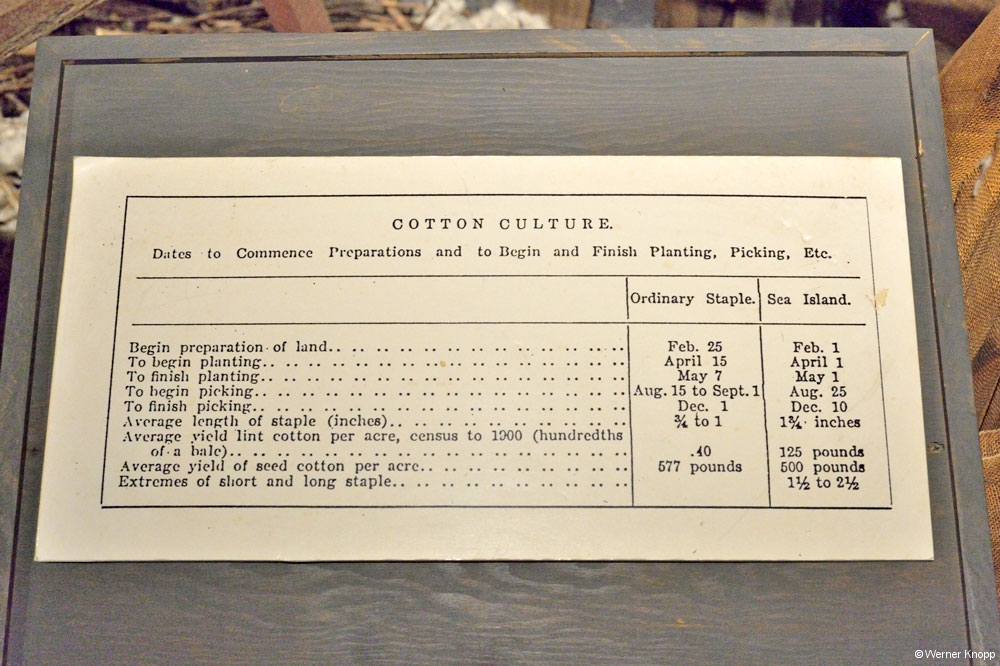 COTTON CULTURE.
Dates to Commence Preparations and to Begin and Finish Planting, Picking, Etc.
Ordinary Staple. Sea Island.
Begin preparation of land.. .. .. .. .. .. .. .. .. .. .. .. .. Feb. 25 Feb. 1
To begin planting.. .. .. .. .. .. .. .. .. .. .. .. .. .. .. .. April 15 April 1
To finish planting.. .. .. .. .. .. .. .. .. .. .. .. .. .. .. .. May 7 May 1
To begin picking.. .. .. .. .. .. .. .. .. .. .. .. .. .. .. .. Aug. 15 to Sept. 1 Aug. 25
To finish picking.. .. .. .. .. .. .. .. .. .. .. .. .. .. .. .. Dec. 1 Dec. 10
Average length of staple (inches).. .. .. .. .. .. .. .. .. .. ¾ to 1 1¾ inches
Average yield lint cotton per acre, census to 1900 (hundredths
of a bale).. .. .. .. .. .. .. .. .. .. .. .. .. .. .. .. .. .40 125 pounds
Average yield of seed cotton per acre.. .. .. .. .. .. .. .. .. 577 pounds 500 pounds
Extremes of short and long staple.. .. .. .. .. .. .. .. .. .. 1½ to 2½
©Werner Knopp